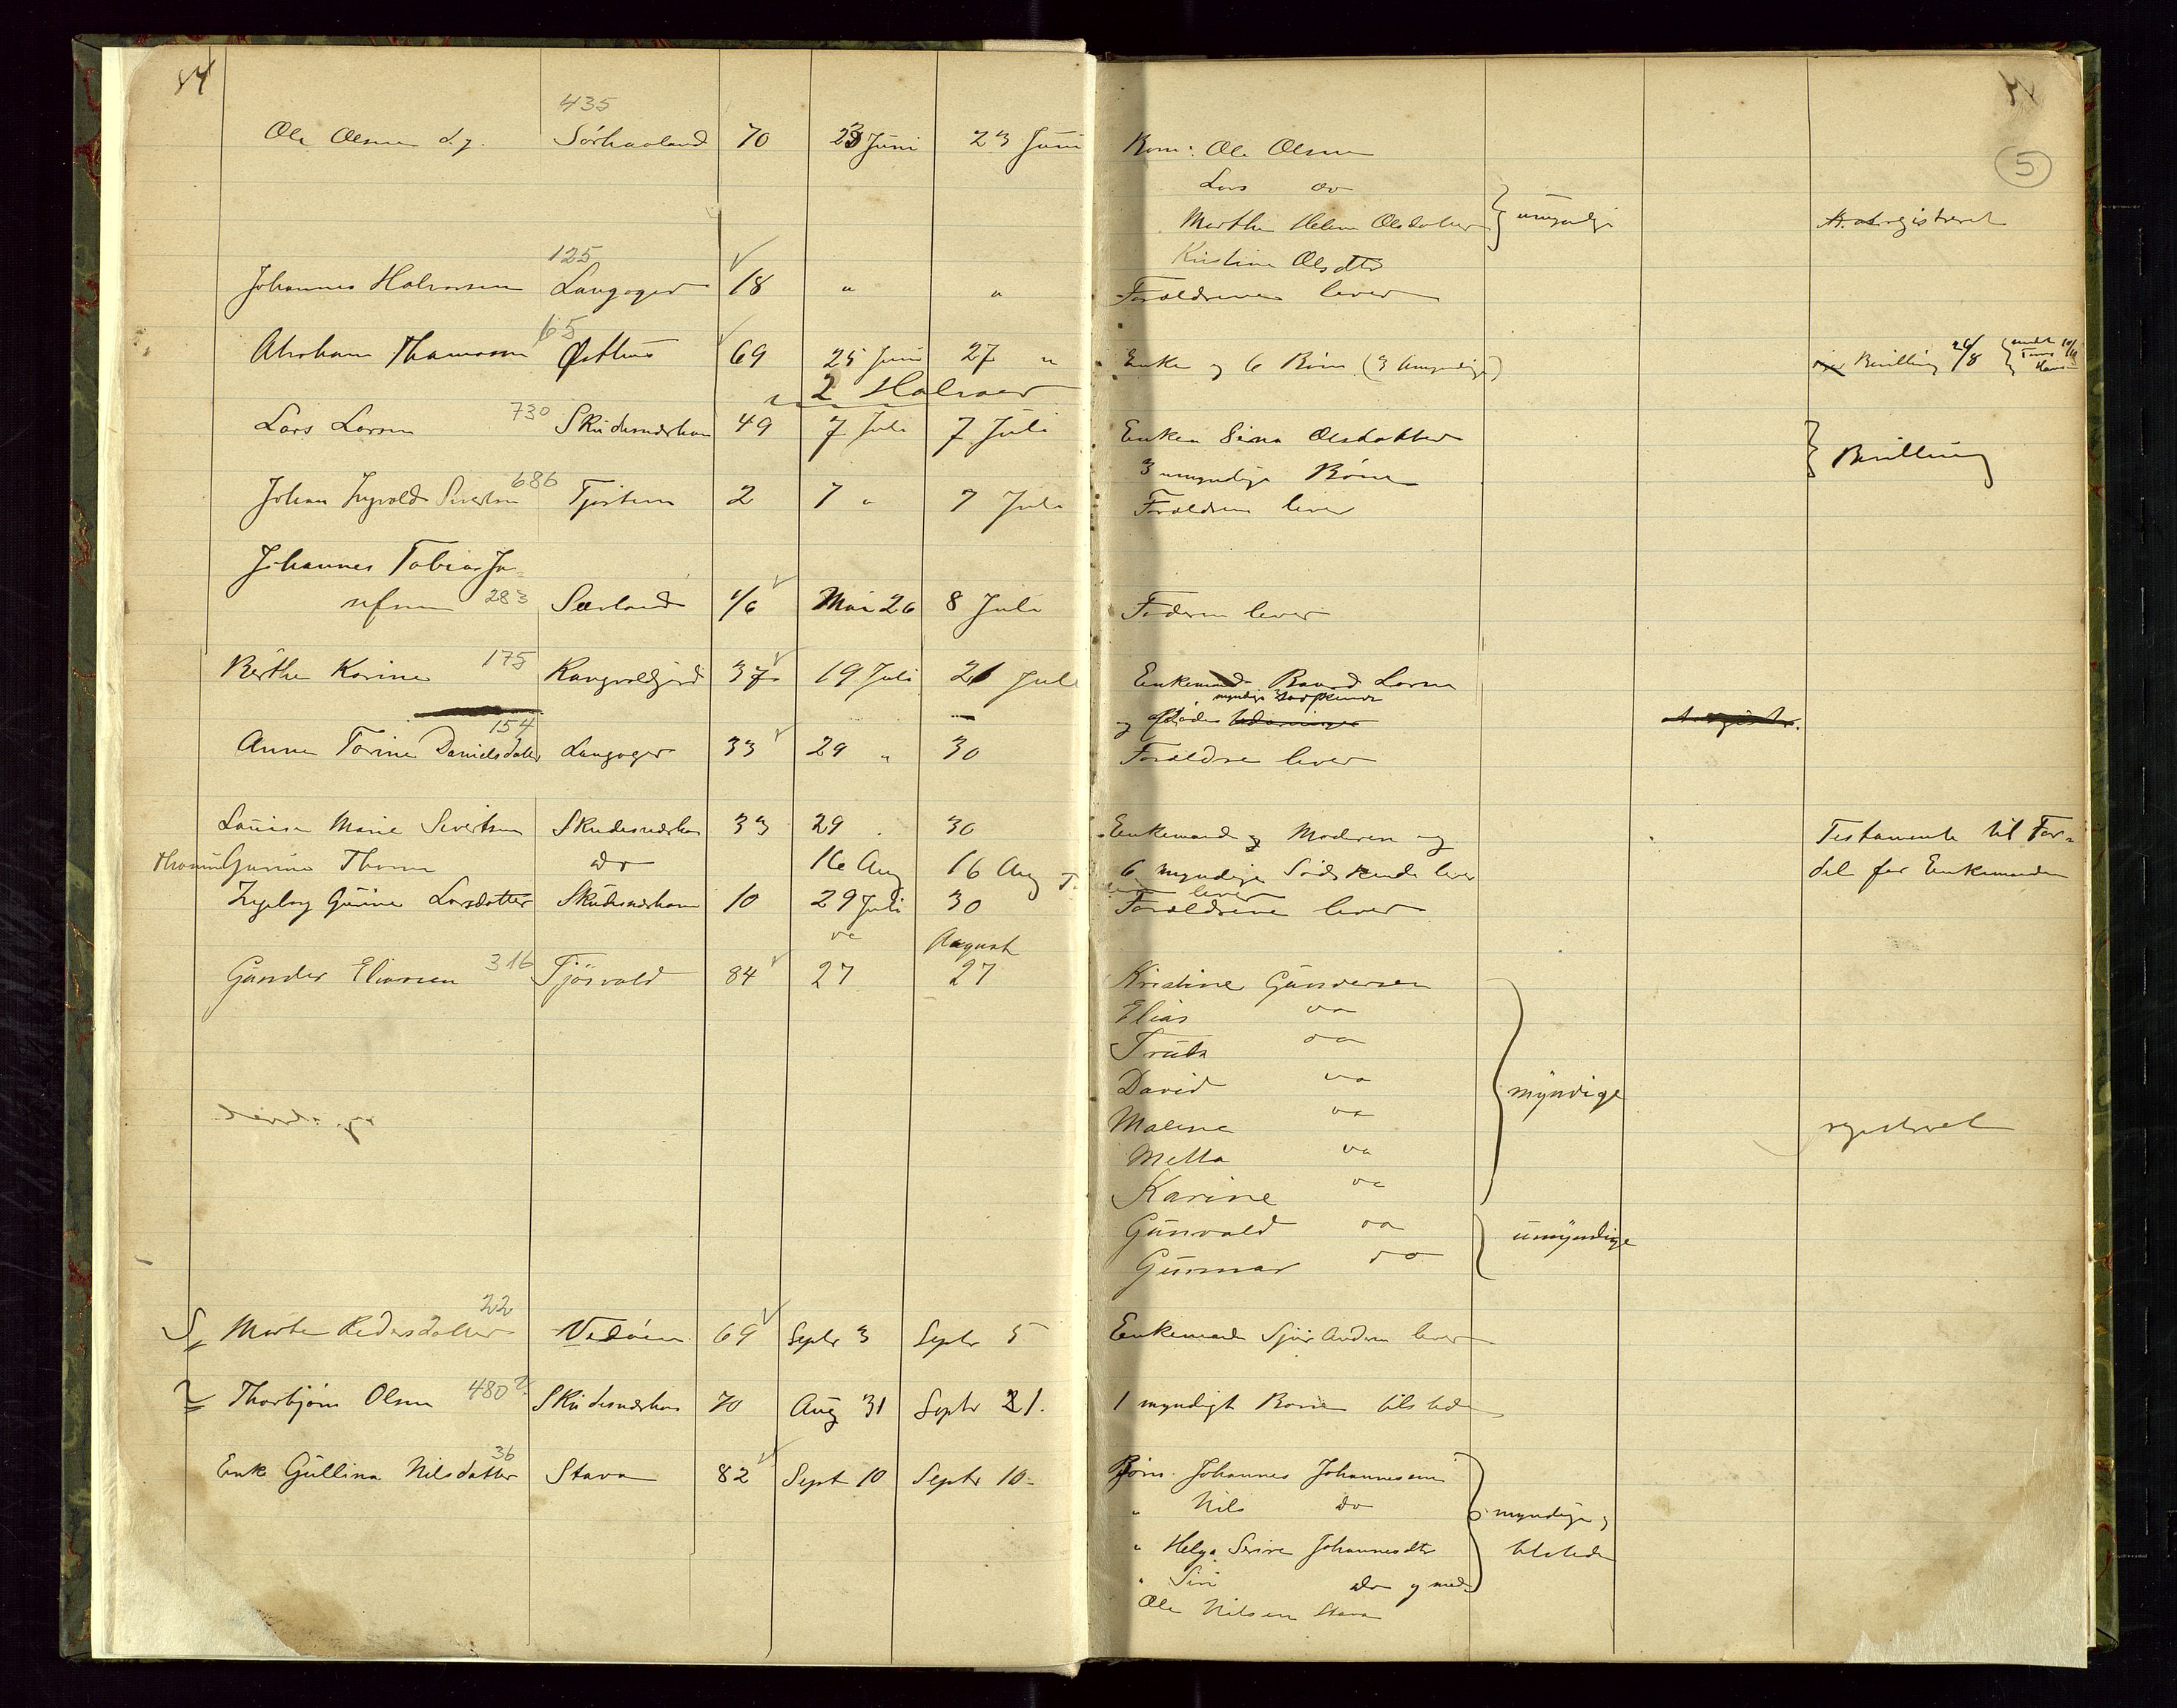 84
5
435
Ole Olsen d.y. Sörhaaland 70 23 Juni 23 Juni Börn: Ole Olsen
Lars do
Marthe Helene Olsdatter } umyndige registreret
Kristine Olsdtr
125
Johannes Halvorsen Langager 18 " " Forældrene lever
65
Abraham Thomassen Østhus 69 25 Juni 27 " Enke og 6 Börn (3 Umyndige) Bevilling 26/8
2 Halvaar
Lars Larsen 730 Skudesneshavn 49 7 Juli 7 Juli Enken Sina Olsdatter
3 umyndige Börn } Bevilling
Johan Ingvald Sivertsen 686 Tjøstem 2 7 " 7 Juli Forældrene lever
Johannes Tobias Jo-
sefsen 283 Sævland 1/6 Mai 26 8 Juli Faderen lever
Berthe Karine 175 Rangvaldjord 37 19 Juli 21 Juli Enkemand Baard Larsen
myndige Sødskende
og
154
Anne Torine Danielsdatter Langager 33 29 " 30 Forældre lever
Louise Marie Sivertsen Skudesneshavn 33 29 30 Enkemand og Moderen og Testamente til For-
Gurine Thorsen do 16 Aug 16 Aug 6 myndige Sødskende lever del for Enkemanden
Ingeborg Gurine Larsdatter Skudesneshavn 10 29 Juli 30 Forældrene lever
do August
Gunder Eliassen 316 Tjösvold 84 27 27 Kristine Gundersen
Elias do
Truls do
David do } myndige
Malene do registreret
Metta do
Karine do
Gunvald do } umyndige
Gunnar do
22
Marte Pedersdatter Vedöen 69 Septr 3 Septr 5 Enkemand Sjur Andersen lever
2 Thorbjörn Olsen 480? Skudesneshavn 70 Aug 31 Septr 21. 1 myndigt Barn tilstede
36
Enke Gullina Nilsdatter Stava 82 Sept 10 Septr 10 - Börn. Johannes Johannesen
" Nils do } myndige og
" Helga Serine Johannesdtr tilstede
" Siri do og med
Ole Nilsen Stava